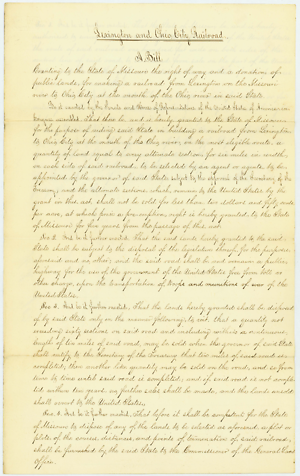 Lexington and Ohio City Railroad.
A Bill
Granting to the State of Missouri the right of way and a donation of
public lands, for making a railroad from Lexington on the Missouri
river to Ohio City at the mouth of the Ohio river in said State.
Be it enacted by the Senate and House of Representatives of the United States of America in
Congress assembled. That there be, and is hereby granted to the State of Missouri
for the purpose of aiding said State in building a railroad from Lexington
to Ohio City at the mouth of the Ohio river, on the most eligible route, a
quantity of land equal to every alternate section for six miles in width,
on each side of said railroad. To be selected by an agent or agents to be
appointed by the governor of said State subject to the approval of the Secretary of the
Treasury, and the alternate sections which remain to the United States by the
grant in this act shall not be sold for less than two dollars and fifty cents
per acre, at which price a preemption right is hereby granted to the State
of Missouri for five years from the passage of this act.
Sec 2. And be it further enacted. That the said lands hereby granted to the said
State shall be subject to the disposal of the legislature thereof, for the purposes
aforesaid and no other; and the said road shall be and remain a public
highway for the use of the government of the United States free from toll or
other charge, upon the transportation of troops and munitions of war of the
United States.
Sec 3. And be it further enacted. That the lands hereby granted shall be disposed
of by said State only in the manner following, to wit, that a quantity not
exceeding sixty sections on said road and included within a continuous
length of ten miles of said road, may be sold when the governor of said State
shall certify to the Secretary of the Treasury that ten miles of said road are
completed; then another like quantity may be sold on the road, and so from
time to time until said road is completed; and if said road is not completed
within ten years no further sales shall be made, and the lands unsold
shall revert to the United States.
Sec 4. And be it further enacted. That before it shall be competent for the State
of Missouri to dispose of any of the lands to be selected as aforesaid a plot or
plats of the course, distances, and points of termination of said railroad,
shall be furnished by the said State to the Commissioner of the General Land
Office.